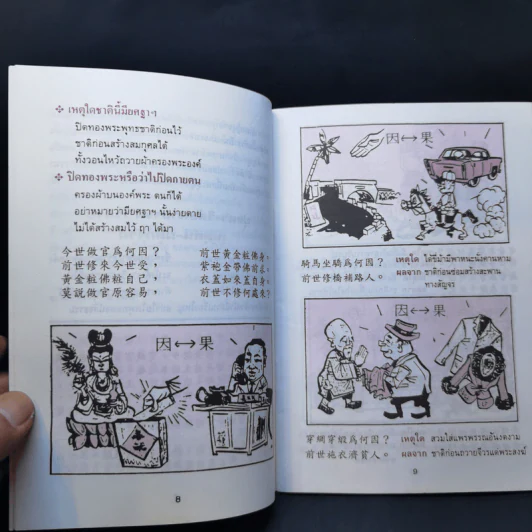 ❖ เหตุใดชาตินี้มียศฐาฯ
ปิดทองพระพุทธชาติก่อนไว้
ชาติก่อนสร้างสมกุศลได้
ทั้งวอนไหว้ถวายผ้าครองพระองค์
❖ ปิดทองพระหรือว่าไปปิดกายตน
ครองผ้าบนองค์พระ ตนก็ได้
อย่าหมายว่ามียศฐาฯ นั้นง่ายดาย
ไม่ได้สร้างสมไว้ ฤา ได้มา
今世做官爲何因？ 前世黃金粧佛身，
前世修來今世受， 紫袍金帶佛前求。
黃金粧佛粧自己， 衣蓋如來蓋自身，
莫説做官原容易， 前世不修何處來？
因↔果
8
因↔果
騎馬坐轎爲何因？ เหตุใด ได้ขี่ม้ามีพาหนะนั่งคานหาม
前世修橋補路人。 ผลจาก ชาติก่อนซ่อมสร้างสะพาน
ทางสัญจร
因↔果
穿綢穿緞爲何因？ เหตุใด สวมใส่แพรพรรณอันงดงาม
前世施衣濟貧人。 ผลจาก ชาติก่อนถวายจีวรแด่พระสงฆ์
9